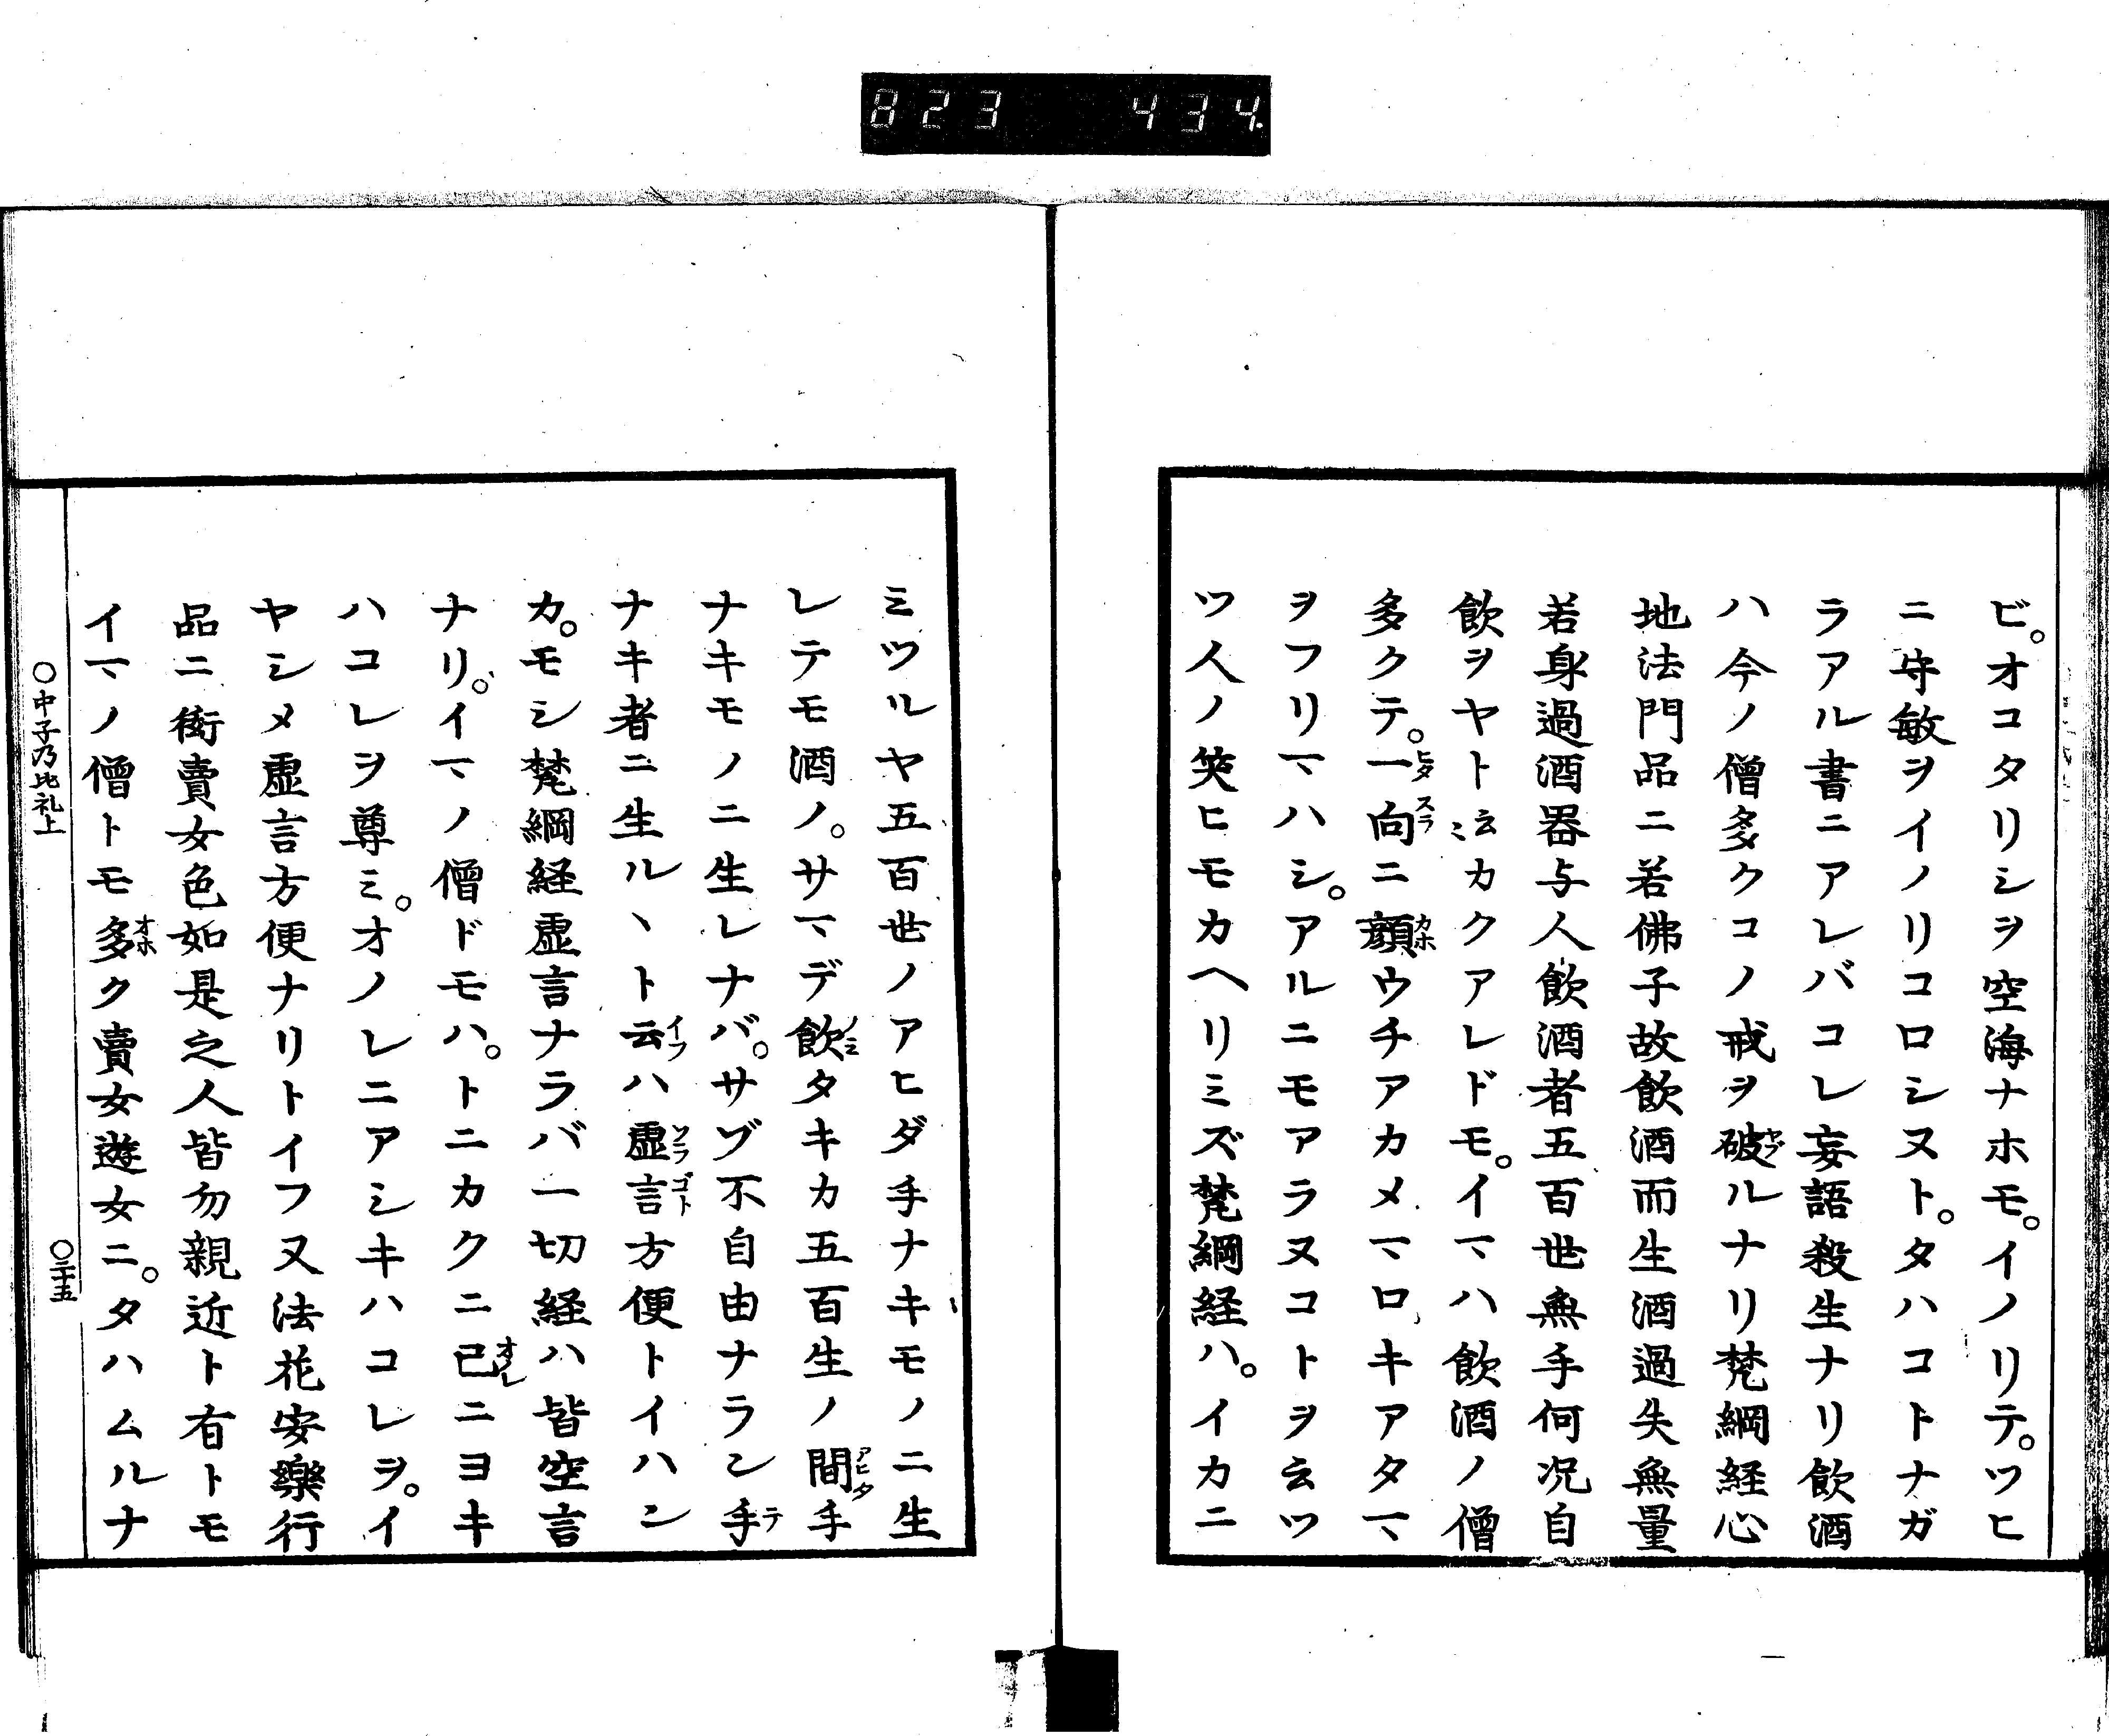 823 434.
ビ。オコタリシヲ空海ナホモ。イノリテ。ツヒ
ニ守敏ヲイノリコロシヌト。タハコトナガ
ラアル書ニアレバコレ妄語殺生ナリ飲酒
ハ今ノ僧多クコノ戒ヲ破ルナリ梵網経心
地法門品ニ若佛子故飲酒而生酒過失無量
若身過酒器与人飲酒者五百世無手何况自
飲ヲヤト云ミカクアレドモ。イマハ飲酒ノ僧
多クテ。一向ニ顔ウチアカメマロキアタマ
ヲフリマハシ。アルニモアラヌコトヲ云ツ
ツ人ノ笑ヒモカヘリミズ梵網経ハ。イカニ
ミツルヤ五百世ノアヒダ手ナキモノニ生
レテモ酒ノ。サマデ飲タキカ五百生ノ間手
ナキモノニ生レナバ。サゾ不自由ナラン手
ナキ者ニ生ルヽト云ハ虚言方便トイハン
カ。モシ梵網経虚言ナラバ一切経ハ皆空言
ナリ。イマノ僧ドモハ。トニカクニ己ニヨキ
ハコレヲ尊ミ。オノレニアシキハコレヲ。イ
ヤシメ虚言方便ナリトイフ又法花安樂行
品ニ衒賣女色如是之人皆勿親近ト有トモ
イマノ僧トモ多ク賣女遊女ニ。タハムルナ
○中子乃比礼上 ○二十五